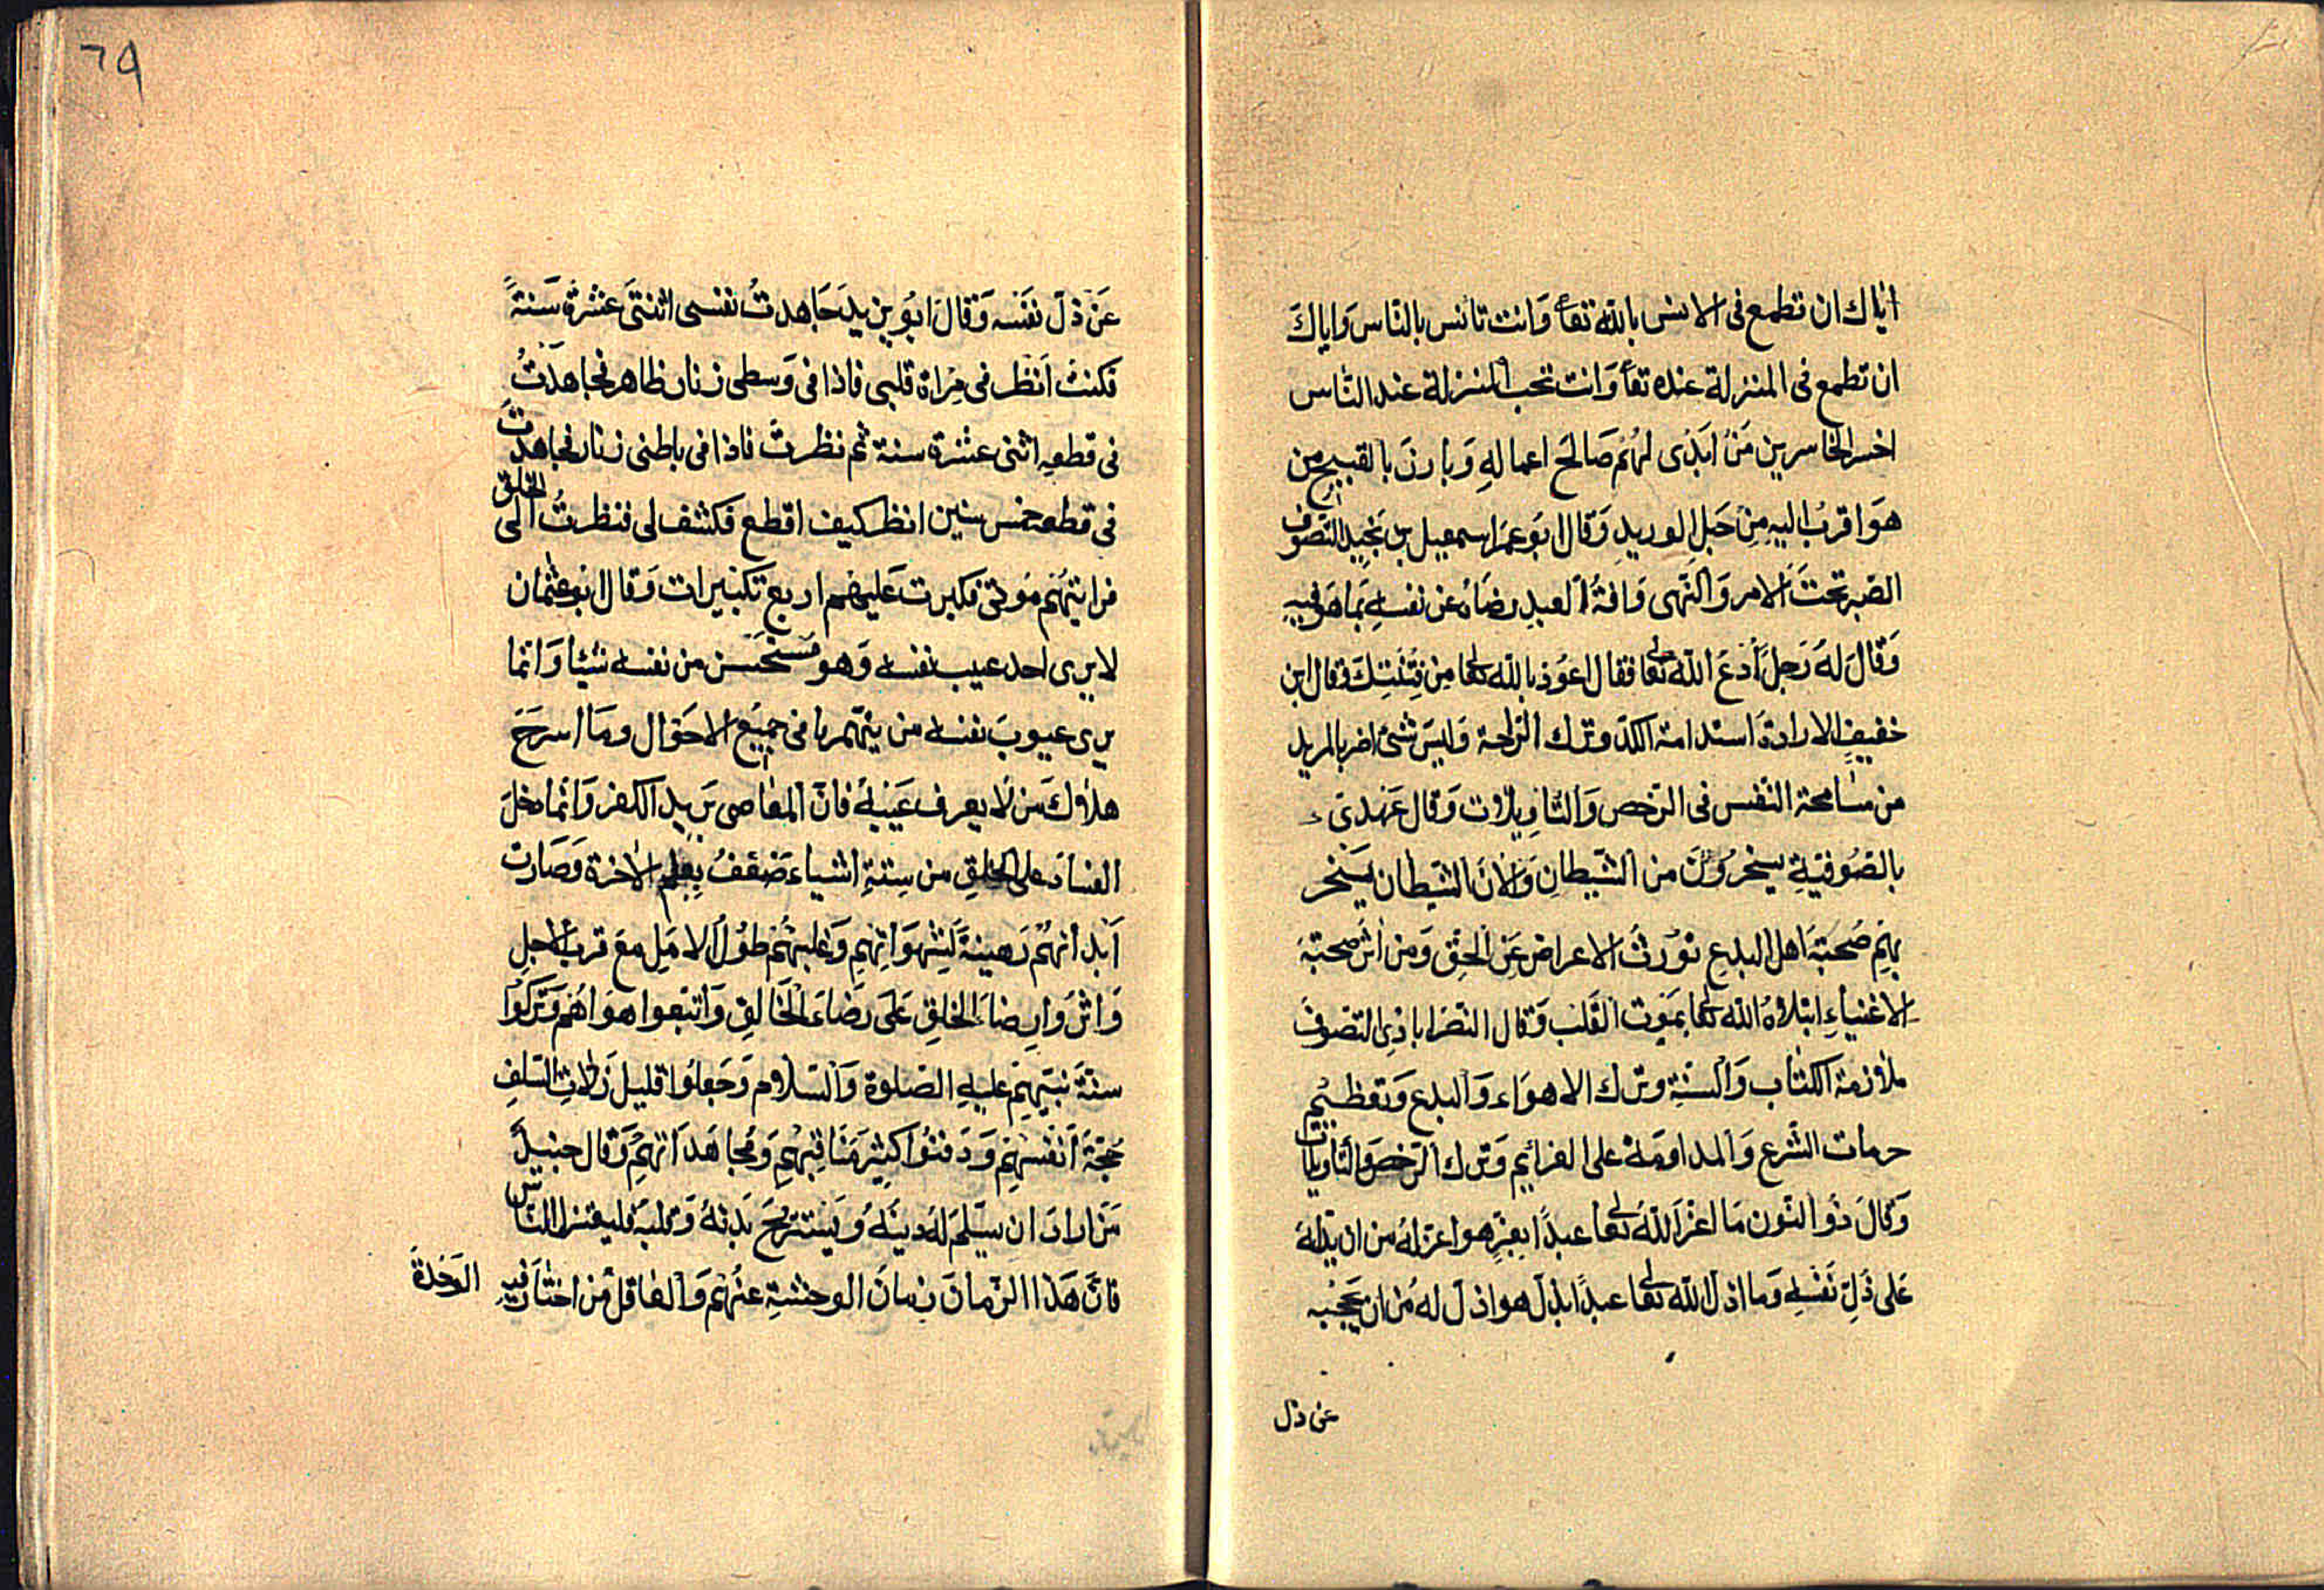 اياك ان تطمع فى الانس بالله تعا وَانت تانس بالنّاس وَاياكَ
ان تطمع فى المنزلة عنده تعا وَانت تحب المنزلة عند النّاس
اخسر الخاسرين مَنْ اَبْدٰى لهُم صَالحَ اعمالهِ وَبارزَ بالقبيح من
هوَ اقربُ اليهِ مِنْ حَبلِ الوريدِ وَقال ابوعمرَ اسمعيل بن نجيدٍ التصوّف
الصّبر تحتَ الامر وَالنّهى وَافةُ العبدِ رضَاهُ عن نفسهِ بما هوَ فيهِ
وَقالَ لهُ رَجلٌ اُدْعُ اللّه تعالى فقال اعوُذ باللّه تعالى مِن فِتْنَتِكَ وقال ابن
خفيفٍ الارادة استدامة الكدّ وترك الرّاحة وَليسَ شئ اضر بالمريد
من مسَامحة النّفس فى الرّخص وَالتّاوِيلات وَقال عَهدى
بالصّوُفيّةِ يسخرُونَ من الشّيطانِ وَالانَ الشّيطان يَسْخر
بهِم صُحبَة اهل البدعِ توُرثُ الاعراض عَنِ الحقّ وَمن اثر صحبَة
الاغنياءِ ابتلاهُ اللّه تعالى بمَوت القَلب وَقال النصرابَاذِى التصّوف
ملازمة الكتاب وَالسّنّةِ وترك الاهوَاء وَالبدع وَتعظيم
حرمات الشَّرع وَالمداومَة على العزائم وَترك الرّخص وَالتّاويلات
وَقالَ ذُو النّون مَا اعزّ اللّهُ تعالى عبدًا بعزٍّ هوَ اعزّ لهُ من ان يدُلّهُ
عَلى ذُلِّ نَفْسهِ وَما اذلّ اللّه تعالى عبدًا بذلٍّ هو اذلّ له مُن ان يحجبه
عن ذل
٦٩
عَنْ ذلّ نفسه وَقالَ ابُو يزيد جَاهدتُ نفسى اثنتىَ عشرةَ سَنةً
فكنتُ اَنظر فى مِراة قلبى فاذا فى وَسطى زنار ظاهر فجاهَدْتُ
فى قطعهِ اثنى عشرة سنة ثم نظرتُ فاذا فى باطنى زنار فجاهدت
فى قطعه خمس سنين انظر كيف اقطع فكشف لى فنظرتُ الى الخلق
فرايتهُم مَوتى فكبرت عَليهم اربع تكبيرات وَقال ابوعثمان
لا يرى احد عيب نفسه وَهو مستَحْسن من نفسه شيئا وَانما
يرى عيوبَ نفسه من يتّهمها فى جميعِ الاحوَال ومَا اسرَعَ
هلاكَ من لا يعرف عَيْبهُ فانّ المعَاصى بَريد الكفر وَانّما دخلَ
الفسَاد على الخلقِ من سِتّةِ اشياء ضعفُ بعلم الاخرة وَصَارت
اَبدانهُم رَهينةً لِشهوَاتِهِم وَغلبهُم طوُل الامَلِ معَ قرب الاجلِ
وَاثَروا رضَاءَ الخلقِ عَلى رضَاءَ الخَالقِ وَاتبَعوا هوَاهُم وَتَركوا
سنّةَ نبيّهِم عليهِ الصّلوة وَالسّلام وَجَعلوُا قليل زلات السّلفِ
حُجّةَ اَنفسهِم وَدَفنُوا كثيِرَ مَنَاقِبهِم وَمجَاهَدَاتِهِم وَقال جنيد
مَن ارادَ ان يسَّلَم لهُ دينُهُ وَيَستَريحَ بَدنُهُ وَقلبُه فليعتزل النّاس
فانّ هَذا الزّمانَ زمانُ الوحشةِ عنهُم وَالعَاقل من اختَار فيهِ الوَحْدة